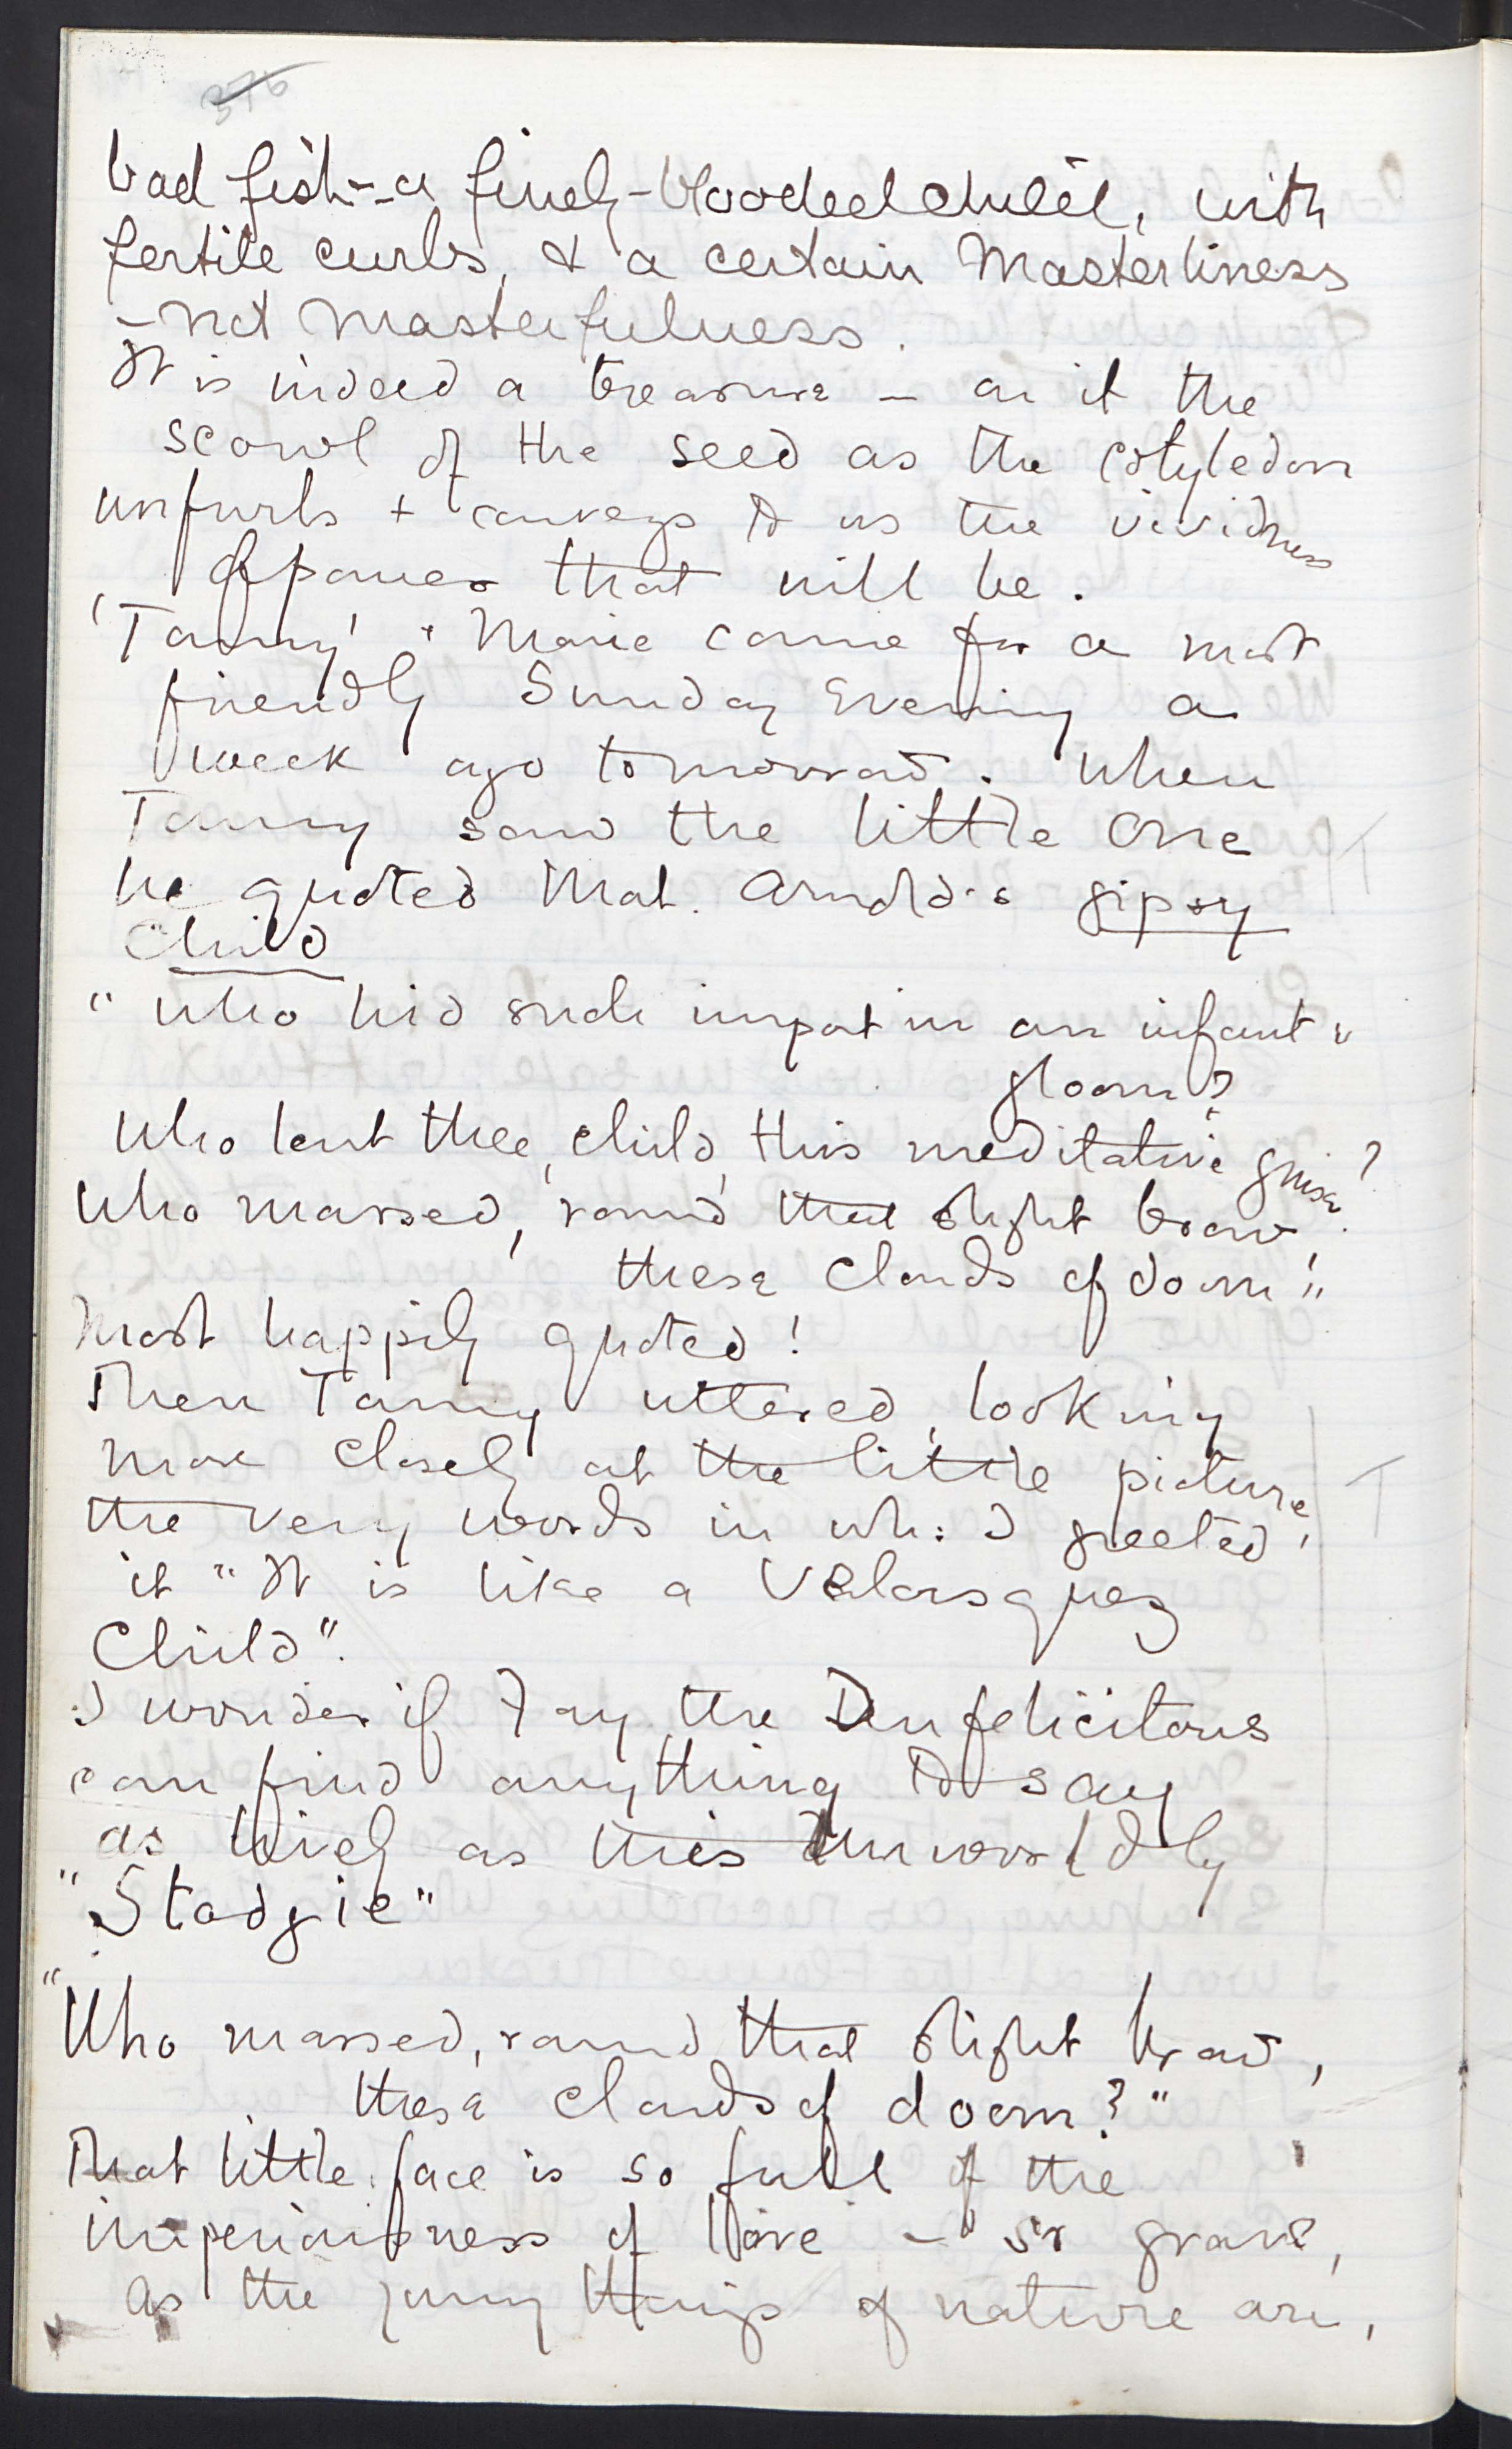 376
bad fish - a finely-blooded child, with
fertile curls, & a certain Masterliness
- not masterfulness.
It is indeed a treasure - as if the
scowl of the seed as the cotyledon
unfurls + conveys to us the vividness
of power that will be.
'Tanny' + Marie came for a most
friendly Sunday Evening a
week ago tomorrow. When
Tanny saw the little one
he quoted Mat. Arnold's gipsy
Child
"Who hid such import in an infant's
gloom?
Who lent thee, child, this meditative guise?
Who massed, round that slight brow,
these clouds of doom!"
Most happily quoted!
Then Tanny uttered, looking
more closely at the little picture,
the very words in wh: I greeted
it "It is like a Velasquez
Child".
I wonder if Fay the Unfelicitous
can find anything to say
as lively as this Unworldly
"Stodgie"
"Who massed, round that slight brow,
these clouds of doom?"
That little face is so full of the
imperiousness of love - so grave,
as the young things of nature are,